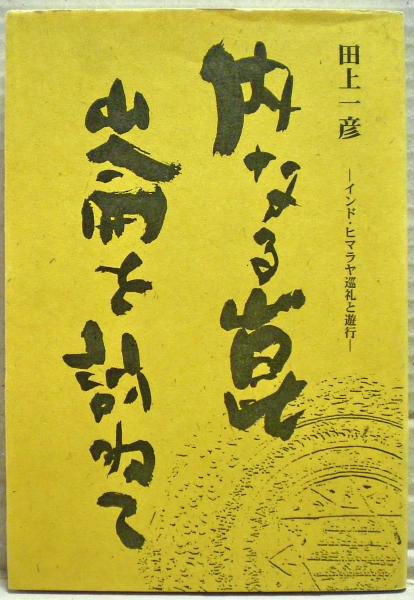 田上一彦
―インド・ヒマラヤ巡礼と遊行―
内なる崑
崙を訪ねて